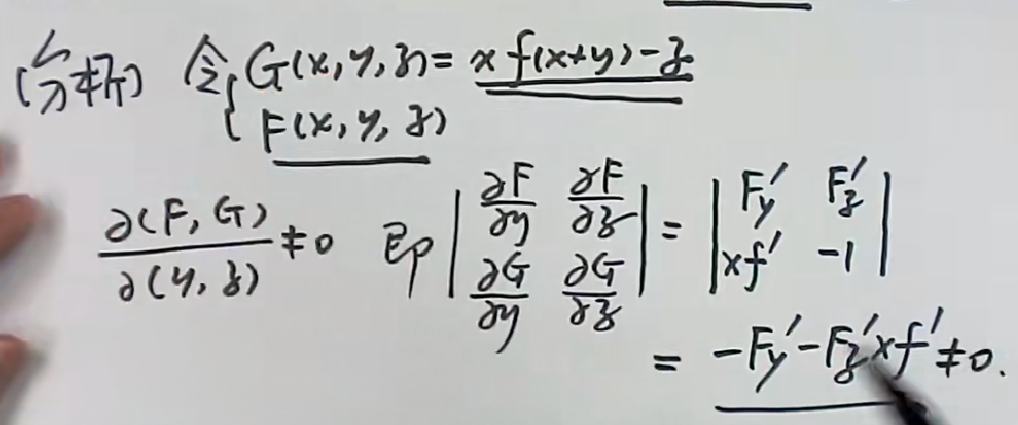 (分析) 令{G(x,y,z)=xf(x+y)-z
F(x,y,z)
∂(F,G)/∂(y,z)≠0 即 |∂F/∂y ∂F/∂z; ∂G/∂y ∂G/∂z| = |F_y′ F_z′; xf′ -1|
= -F_y′-F_z′xf′≠0.